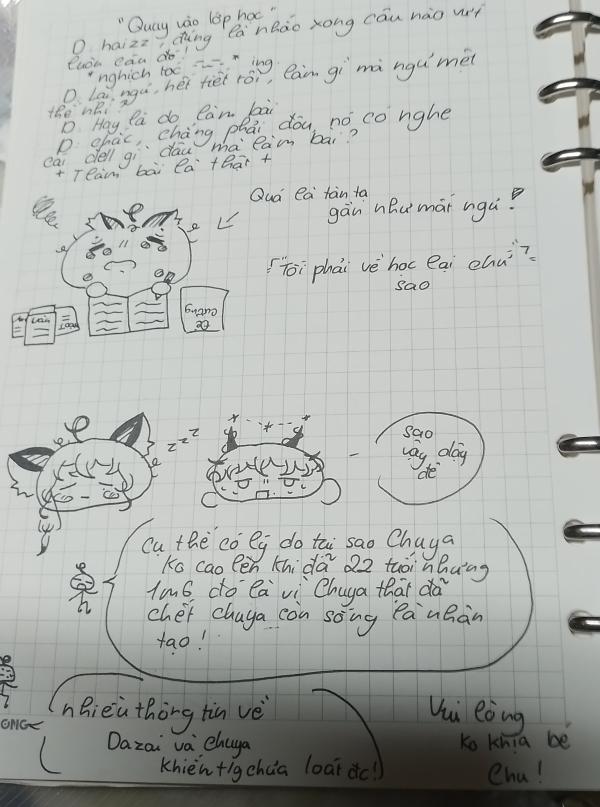 "Quay vào lớp học"
D. haizz, đúng là nhắc xong câu nào vứt
luôn câu đó!
*nghịch tóc ing
D. Lại ngủ, hết tiết rồi, làm gì mà ngủ mệt
thế nhỉ?
D. Hay là do làm bài
D. chắc, chẳng phải đâu, nó có nghe
cái dell gì đâu mà làm bài?
+ làm bài là thật +
Quá là tàn tạ
gần như mất ngủ!
"Tôi phải về học lại chứ
sao
Văn
Toán
Đề
cương
zzz
sao
vậy dậy
đê
Cụ thể có lý do tại sao Chuya
ko cao lên khi đã 22 tuổi nhưng
1m6 đó là vì Chuya thật đã
chết chuya còn sống là nhân
tạo!
nhiều thông tin về
Dazai và Chuya
khiến t/g chưa loát đc!
Vui lòng
ko khịa bé
Chu!